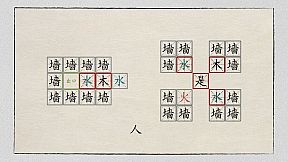 墙墙 墙墙
墙墙墙墙 墙水 木墙
墙 水木水 是
墙墙墙墙 墙火 水墙
墙墙 墙墙
人